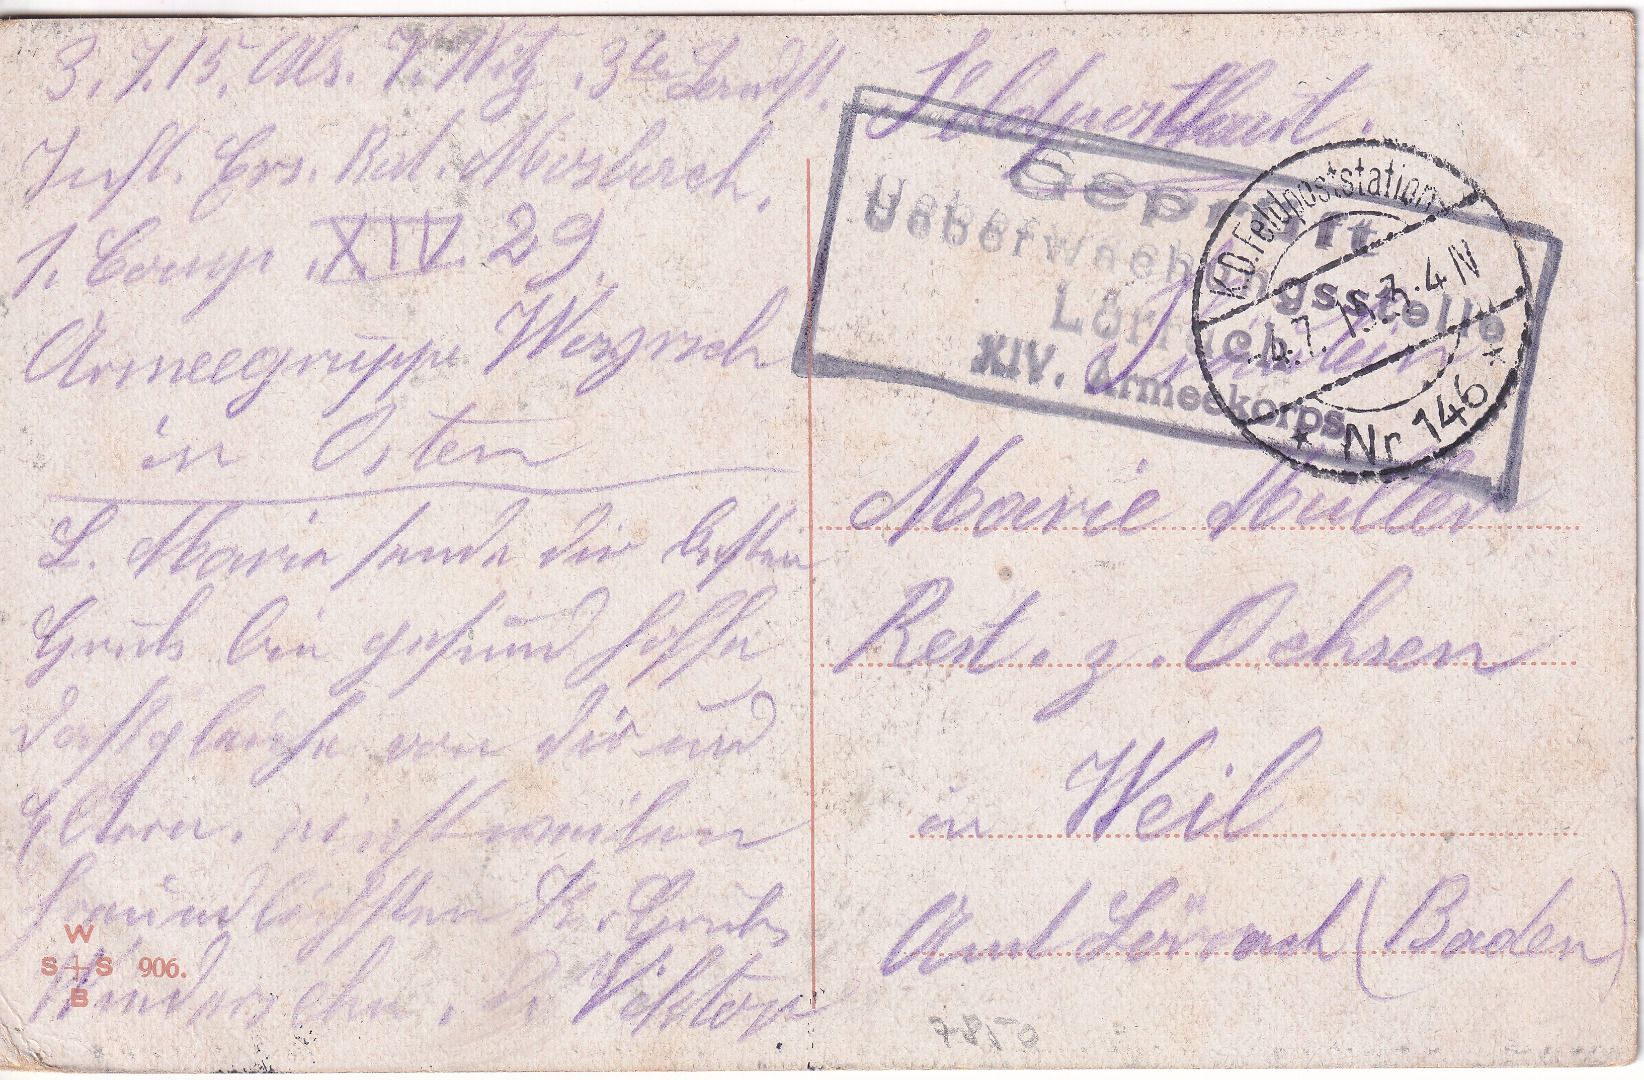 3.7.15. Abs. V. Witz, 3te Landst.
Inft. Ers. Bat. Mosbach.
1. Comp. XIV. 29.
Armeegruppe Woyrsch
in Osten
L. Maria sende dir besten
Gruß bin gesund hoffe
dasselbe von dir und
Eltern.
freundlichsten Gruß
Wiedersehn. Viktor
Feldpostkart.
Geprüft
Ueberwachungsstelle
Lörrach
XIV. Armeekorps
K.D. Feldpoststation
4.7.15. 3-4 N
* Nr 146 *
Fräulein
Marie Müller
Rest. z. Ochsen
in Weil
Amt Lörrach (Baden)
W
S+S 906.
B